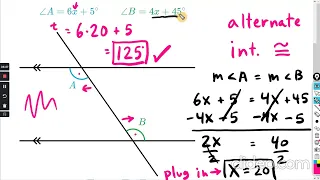 ∠A = 6x + 5°
∠B = 4x + 45°
t
= 6·20 + 5
125 ✓
A
B
alternate
int. ≅
m∠A = m∠B
6x + 5 = 4x + 45
-4x - 5 -4x - 5
2x = 40
2 2
plug in → x = 20